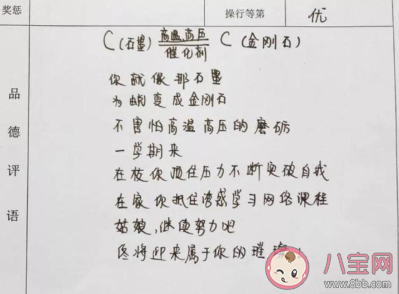 奖惩 操行等第 优
C(石墨) 高温高压 催化剂 C (金刚石)
你就像那石墨
为蜕变成金刚石
不害怕高温高压的磨砺
一学期来
在校你顶住压力不断突破自我
在家你抵住诱惑学习网络课程
姑娘,继续努力吧
终将迎来属于你的璀璨
品德评语
八宝网
www.8bb.com